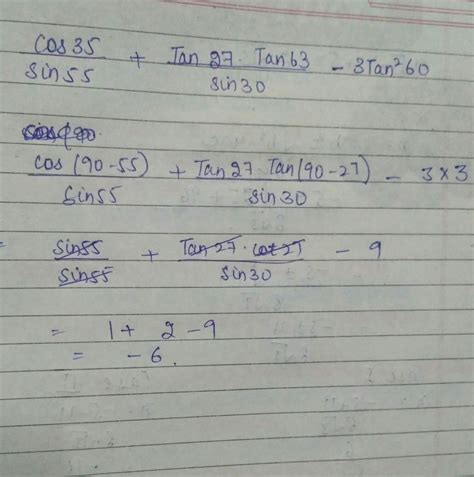 cos 35 / sin 55 + Tan 27 . Tan 63 / sin 30 - 3Tan²60
cos (90-55) / sin 55 + Tan 27 . Tan (90-27) / sin 30 - 3 × 3
= sin 55 / sin 55 + Tan 27 . cot 27 / sin 30 - 9
= 1 + 2 - 9
= - 6.